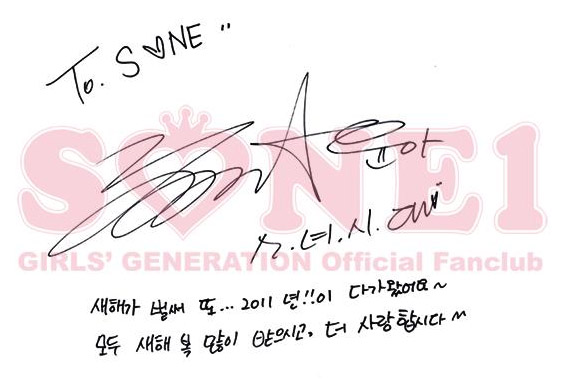 To. S♥NE
윤아
소.녀.시.대
S♥NE1
GIRLS' GENERATION Official Fanclub
새해가 벌써 또... 2011 년!!이 다가왔어요~
모두 새해 복 많이 받으시고, 더 사랑합시다^^